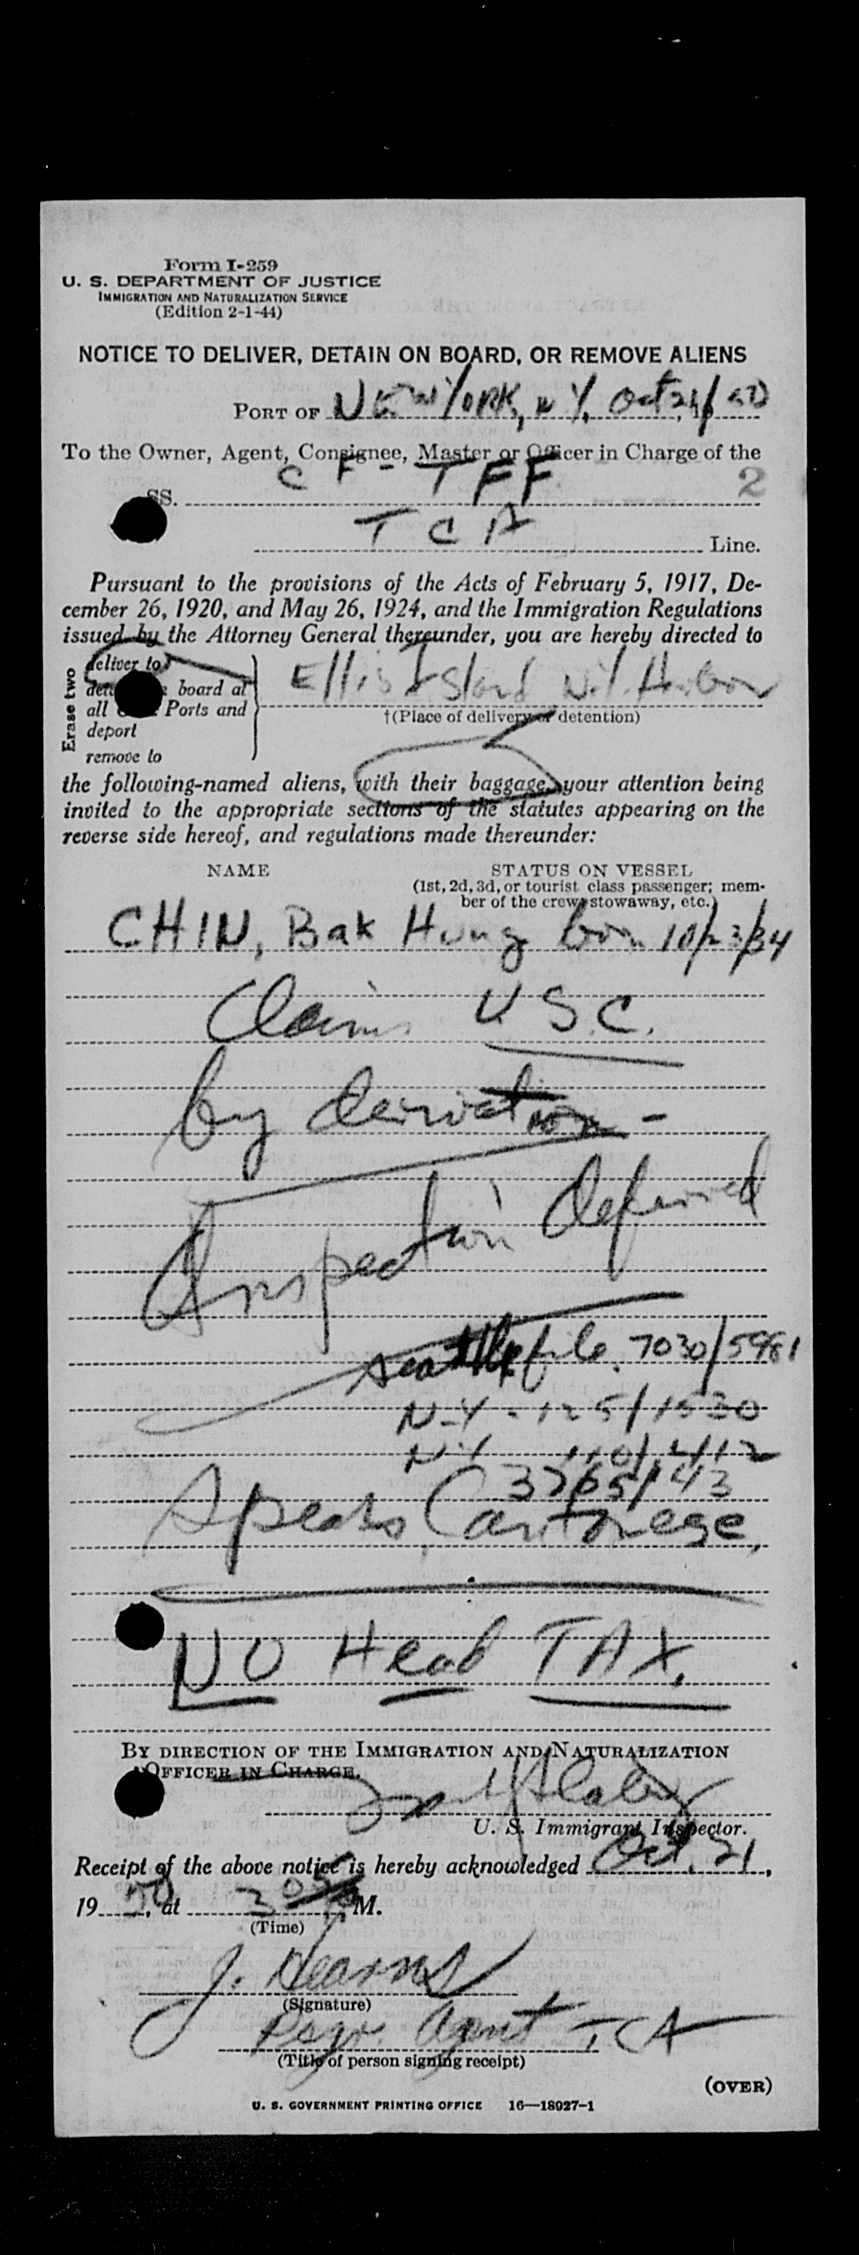 Form I-259
U. S. DEPARTMENT OF JUSTICE
IMMIGRATION AND NATURALIZATION SERVICE
(Edition 2-1-44)
NOTICE TO DELIVER, DETAIN ON BOARD, OR REMOVE ALIENS
PORT OF NEW YORK, N.Y. Oct 21/50
To the Owner, Agent, Consignee, Master or Officer in Charge of the
SS. CF-TFF 2
TCA Line.
Pursuant to the provisions of the Acts of February 5, 1917, De-
cember 26, 1920, and May 26, 1924, and the Immigration Regulations
issued by the Attorney General thereunder, you are hereby directed to
Erase two
deliver to
board at
all Ports and
deport
remove to
Ellis Island N.Y. Harbor
†(Place of delivery or detention)
the following-named aliens, with their baggage, your attention being
invited to the appropriate sections of the statutes appearing on the
reverse side hereof, and regulations made thereunder:
NAME STATUS ON VESSEL
(1st, 2d, 3d, or tourist class passenger; mem-
ber of the crew, stowaway, etc.)
CHIN, Bak Hung born 10/23/34
Claims U.S.C.
by derivation -
Inspection deferred
Seattle file 7030/5981
N-Y - 125/1530
N-Y 110/412
3765/43
Speaks Cantonese,
NO Head TAX.
BY DIRECTION OF THE IMMIGRATION AND NATURALIZATION
OFFICER IN CHARGE.
U. S. Immigrant Inspector.
Receipt of the above notice is hereby acknowledged Oct. 21,
1950, at 305 P.M.
(Time)
J. Hearns
(Signature)
Psgr. Agent TCA
(Title of person signing receipt)
(OVER)
U. S. GOVERNMENT PRINTING OFFICE 16—18927-1